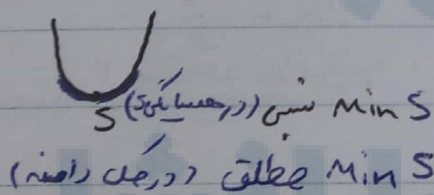 S Min نسبی (در همسایگی S)
S
S Min مطلق (در کل دامنه)